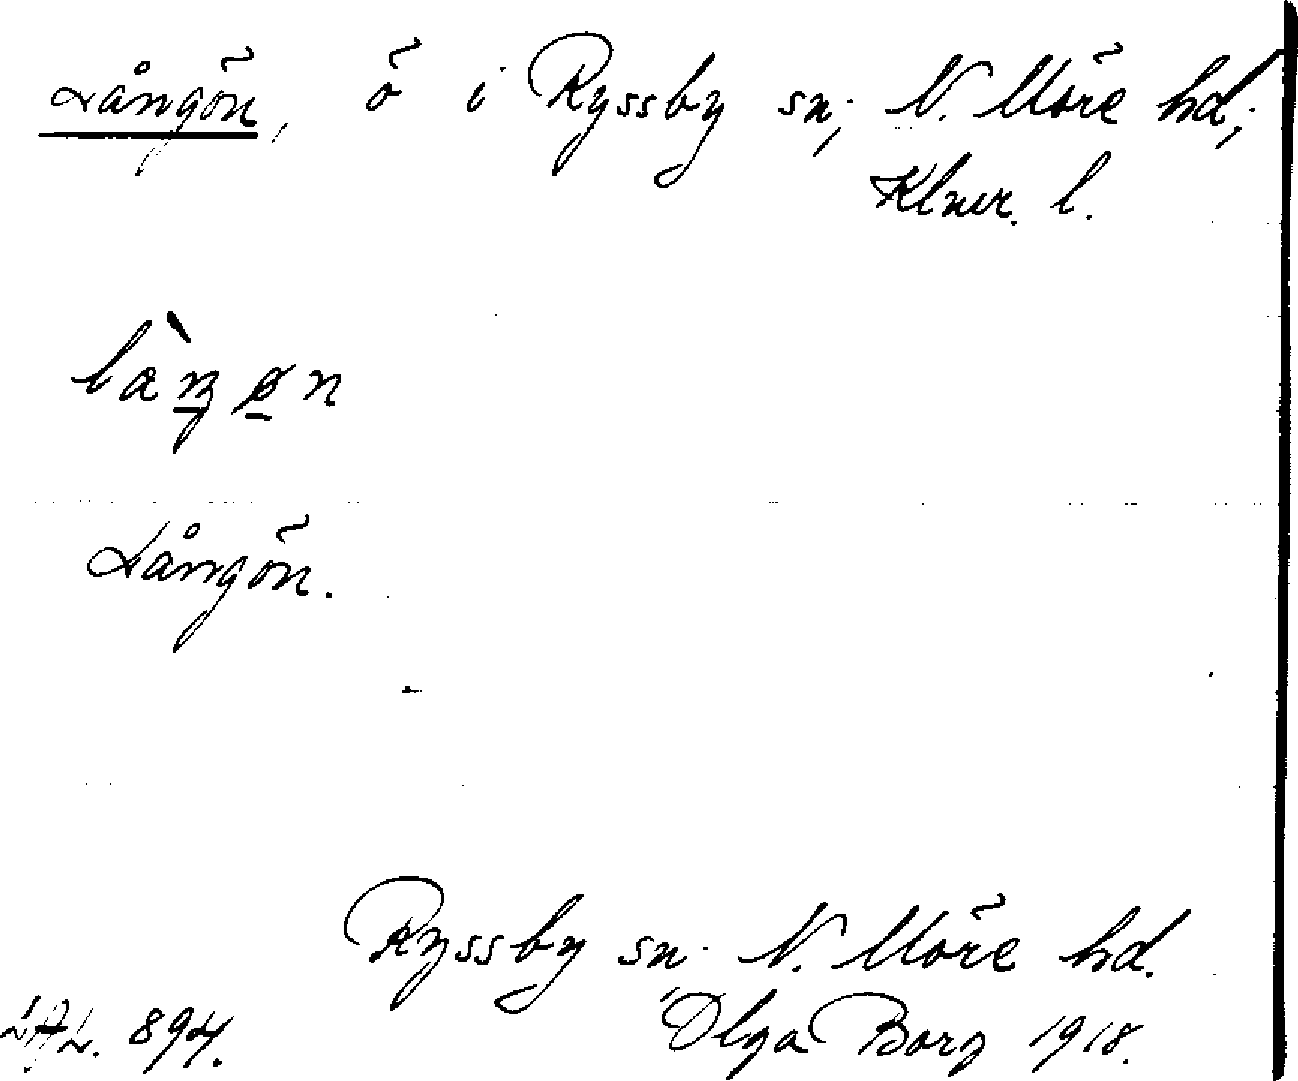 Långön, ö i Ryssby sn; N. Möre hd;
Klmr. l.
Långön.
Ryssby sn. N. Möre hd.
LAL. 894. Olga Borg 1918.